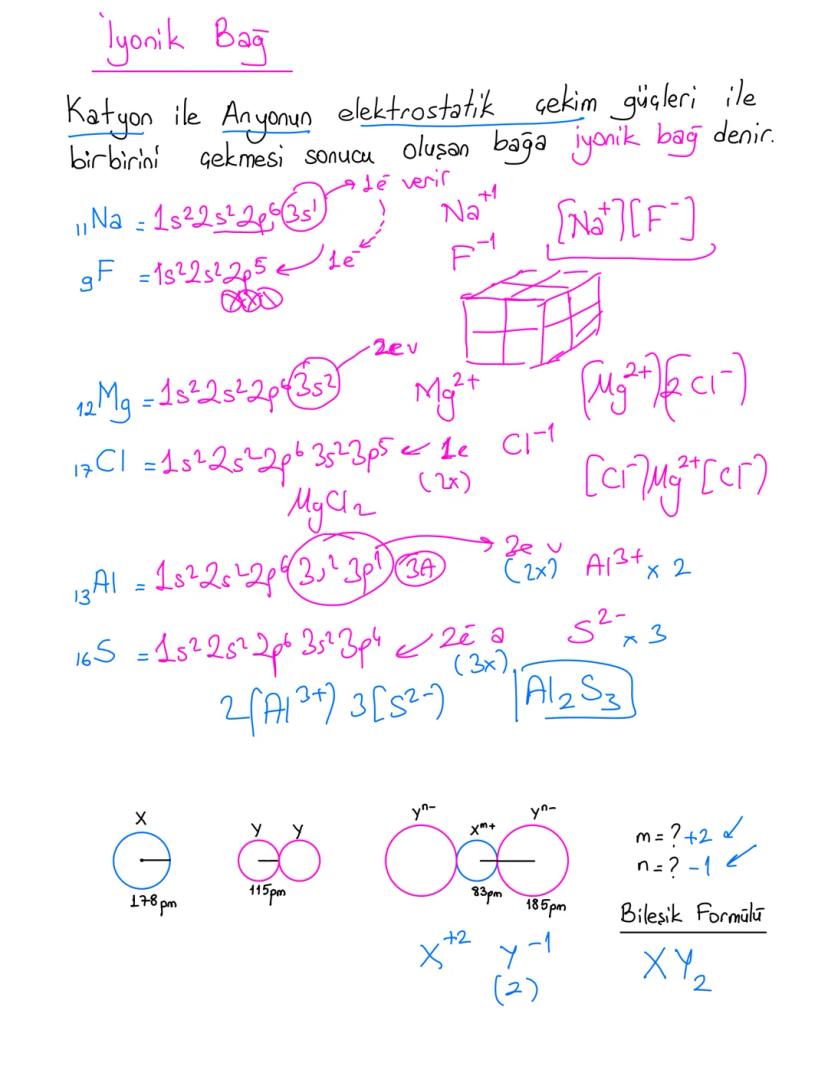 İyonik Bağ
Katyon ile Anyonun elektrostatik çekim güçleri ile
birbirini çekmesi sonucu oluşan bağa iyonik bağ denir.
₁₁Na = 1s² 2s² 2p⁶ 3s¹ → 1e⁻ verir Na⁺¹ [Na⁺][F⁻]
₉F = 1s² 2s² 2p⁵ ← 1e⁻ F⁻¹
₁₂Mg = 1s² 2s² 2p⁶ 3s² 2e v Mg²⁺ (Mg²⁺)(2Cl⁻)
₁₇Cl = 1s² 2s² 2p⁶ 3s² 3p⁵ ← 1e Cl⁻¹
(2x) [Cl⁻]Mg²⁺[Cl⁻)
MgCl₂
₁₃Al = 1s² 2s² 2p⁶ 3s² 3p¹ 3A → 3e v Al³⁺ x 2
(2x)
₁₆S = 1s² 2s² 2p⁶ 3s² 3p⁴ ← 2e⁻ a S²⁻ x 3
(3x)
2(Al³⁺) 3[S²⁻) Al₂S₃
X Y Y Yⁿ⁻ Xᵐ⁺ Yⁿ⁻
178pm 115pm 83pm 185pm
m = ? +2
n = ? -1
Bileşik Formülü
X⁺² Y⁻¹ XY₂
(2)